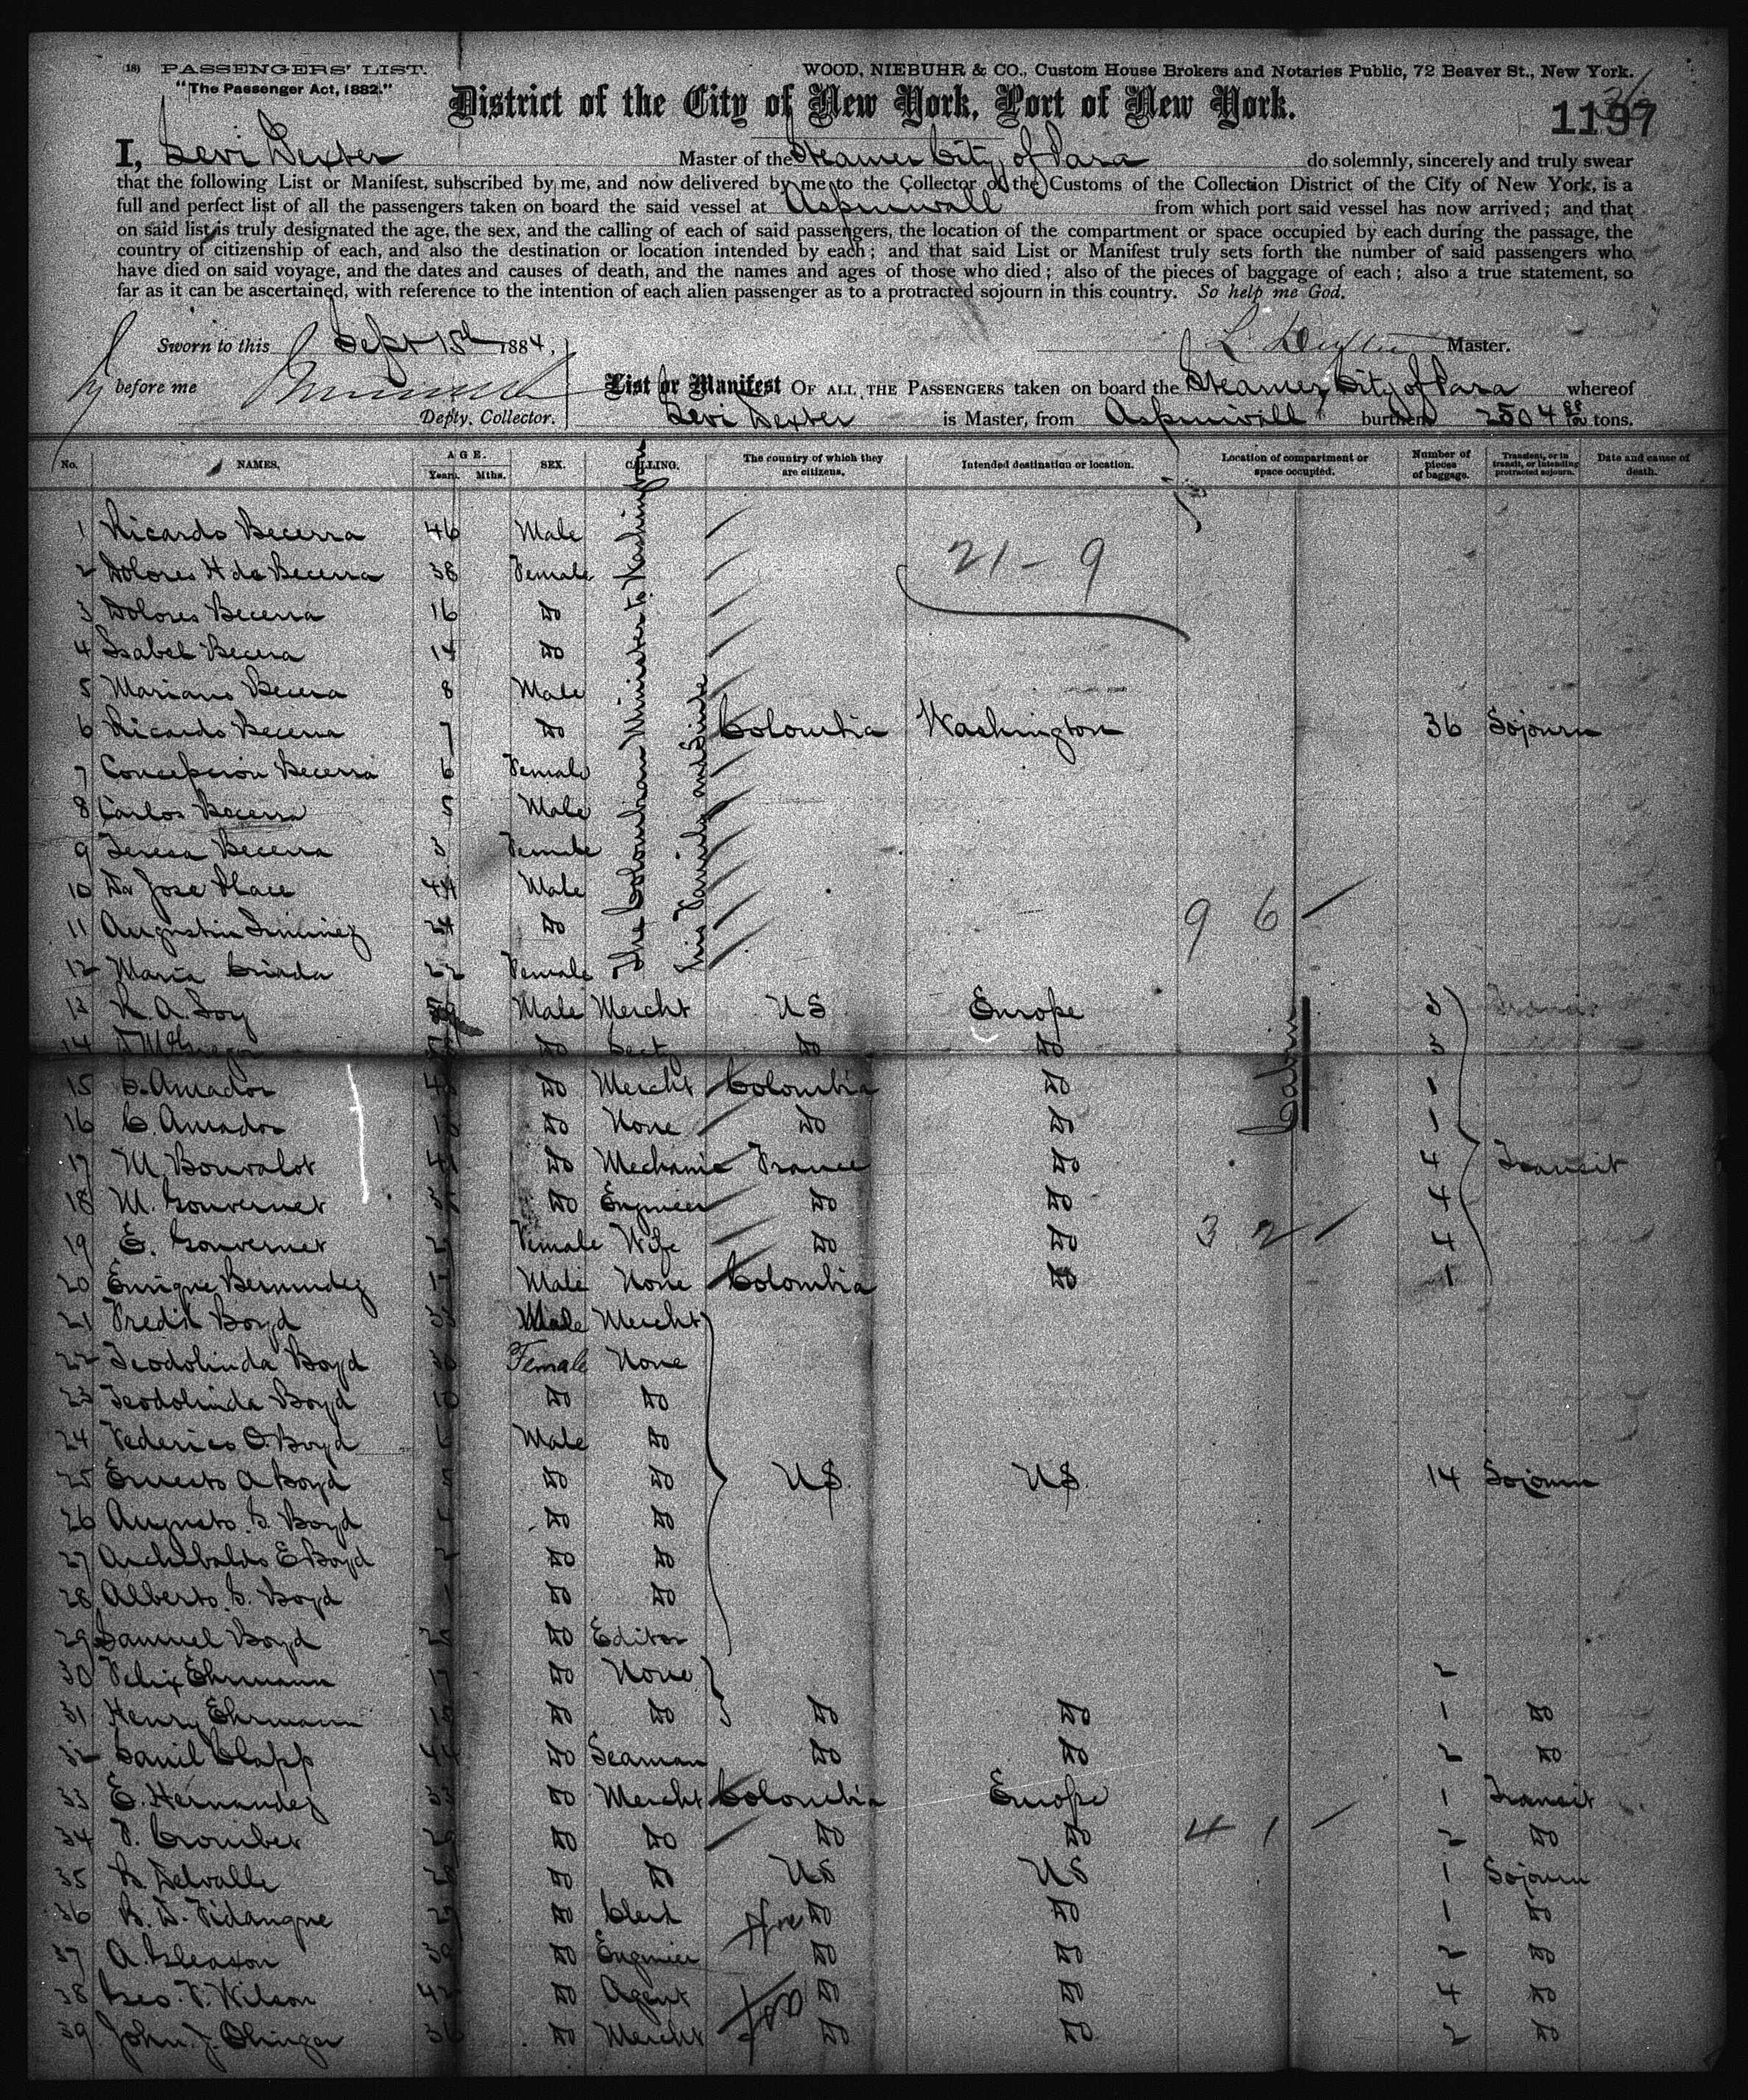 (18) PASSENGERS' LIST.
"The Passenger Act, 1882."
WOOD, NIEBUHR & CO., Custom House Brokers and Notaries Public, 72 Beaver St., New York.
District of the City of New York, Port of New York.
1197
I, Levi Dexter Master of the Steamer City of Para do solemnly, sincerely and truly swear
that the following List or Manifest, subscribed by me, and now delivered by me to the Collector of the Customs of the Collection District of the City of New York, is a
full and perfect list of all the passengers taken on board the said vessel at Aspinwall from which port said vessel has now arrived; and that
on said list is truly designated the age, the sex, and the calling of each of said passengers, the location of the compartment or space occupied by each during the passage, the
country of citizenship of each, and also the destination or location intended by each; and that said List or Manifest truly sets forth the number of said passengers who
have died on said voyage, and the dates and causes of death, and the names and ages of those who died; also of the pieces of baggage of each; also a true statement, so
far as it can be ascertained, with reference to the intention of each alien passenger as to a protracted sojourn in this country. So help me God.
Sworn to this Sept 15th 1884,
L Dexter Master.
before me
Depty. Collector.
List or Manifest OF ALL THE PASSENGERS taken on board the Steamer City of Para whereof
Levi Dexter is Master, from Aspinwall burthen 2504 tons.
No. NAMES. AGE. Years. Mths. SEX. CALLING. The country of which they are citizens. Intended destination or location. Location of compartment or space occupied. Number of pieces of baggage. Transient, or in transit, or intending protracted sojourn. Date and cause of death.
The Colombian Minister to Washington
his family and suite
21 - 9
1 Ricardo Becerra 46 Male
2 Dolores H de Becerra 38 Female
3 Dolores Becerra 16 Do
4 Isabel Becerra 14 Do
5 Mariano Becerra 8 Male
6 Ricardo Becerra 7 Do Colombia Washington 36 Sojourn
7 Concepcion Becerra 6 Female
8 Carlos Becerra 5 Male
9 Teresa Becerra 3 Female
10 Dr Jose Place 44 Male
11 Augustin Jiminez 24 Do 9 6
12 Maria Criada 22 Female
Cabin
13 R. A. Joy Male Mercht US Europe 3
14 Do Do Do 3
15 Amador Do Mercht Colombia Do 1
16 C. Amador Do None Do Do 1
17 M. Bonvalot Do Mechanic France Do 4 Transit
18 M. Gouvernet Do Engineer Do Do 4
19 E. Gouvernet Female Wife Do Do 3 2 4
20 Enrique Bermudez 17 Male None Colombia Do 1
21 Fredk Boyd Male Mercht
22 Teodolinda Boyd Female None
23 Teodolinda Boyd 10 Do Do
24 Federico O. Boyd 6 Male Do
25 Ernesto A Boyd 5 Do Do US US 14 Sojourn
26 Augusto S. Boyd 4 Do Do
27 Archibaldo E Boyd 2 Do Do
28 Alberto G. Boyd 1 Do Do
29 Samuel Boyd Do Editor
30 Felix Ehrmann 17 Do None 2
31 Henry Ehrmann Do Do Do Do 1 Do
32 Danil Clapp 44 Do Seaman Do Do 2 Do
33 E. Hernandez 33 Do Mercht Colombia Europe 1 Transit
34 Do Do Do Do 4 1 2 Do
35 Delvalle Do Do US US 1 Sojourn
36 Fidanque Do Clerk Do Do 1 Do
37 A. Gleason Do Engineer Do Do 2 Do
38 Geo. F. Wilson 42 Do Agent Do Do 4 Do
39 John J. Olinger 36 Do Mercht Do Do 2 Do